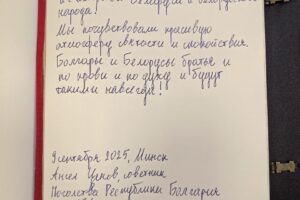 Беларуси и белорусского
народа!
Мы почувствовали красивую
атмосферу святости и спокойствия.
Болгары и Белорусы братья и
по крови и по духу и будут
такими навсегда!
9 сентября 2025, Минск
Ангел, советник
Посольства Республики Болгария